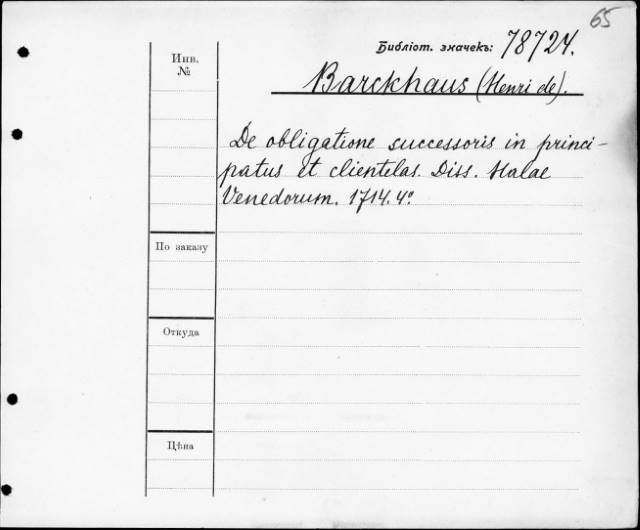 65
Библіот. значекъ: 78724.
Инв.
№
Barckhaus (Henri de).
De obligatione successoris in princi-
patus et clientelas. Diss. Halae
Venedorum. 1714. 4º
По заказу
Откуда
Цѣна